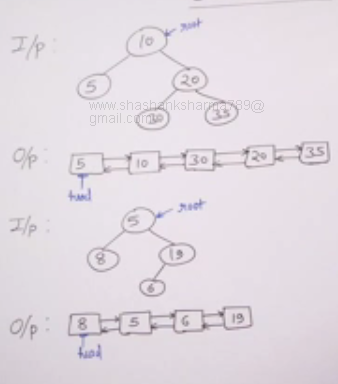 I/p:
10 root
5 20
30 35
www.shashanksharma789@
gmail.com
O/p: 5 10 30 20 35
head
I/p: 5 root
8 19
6
O/p: 8 5 6 19
head